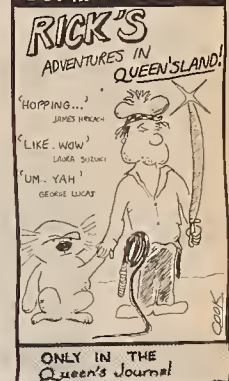 RICK'S
ADVENTURES IN
QUEEN'SLAND!
'HOPPING...'
'LIKE..WOW'
LAURA SUZUKI
'UM.. YAH'
GEORGE LUCAS
COOK
ONLY IN THE
Queen's Journal